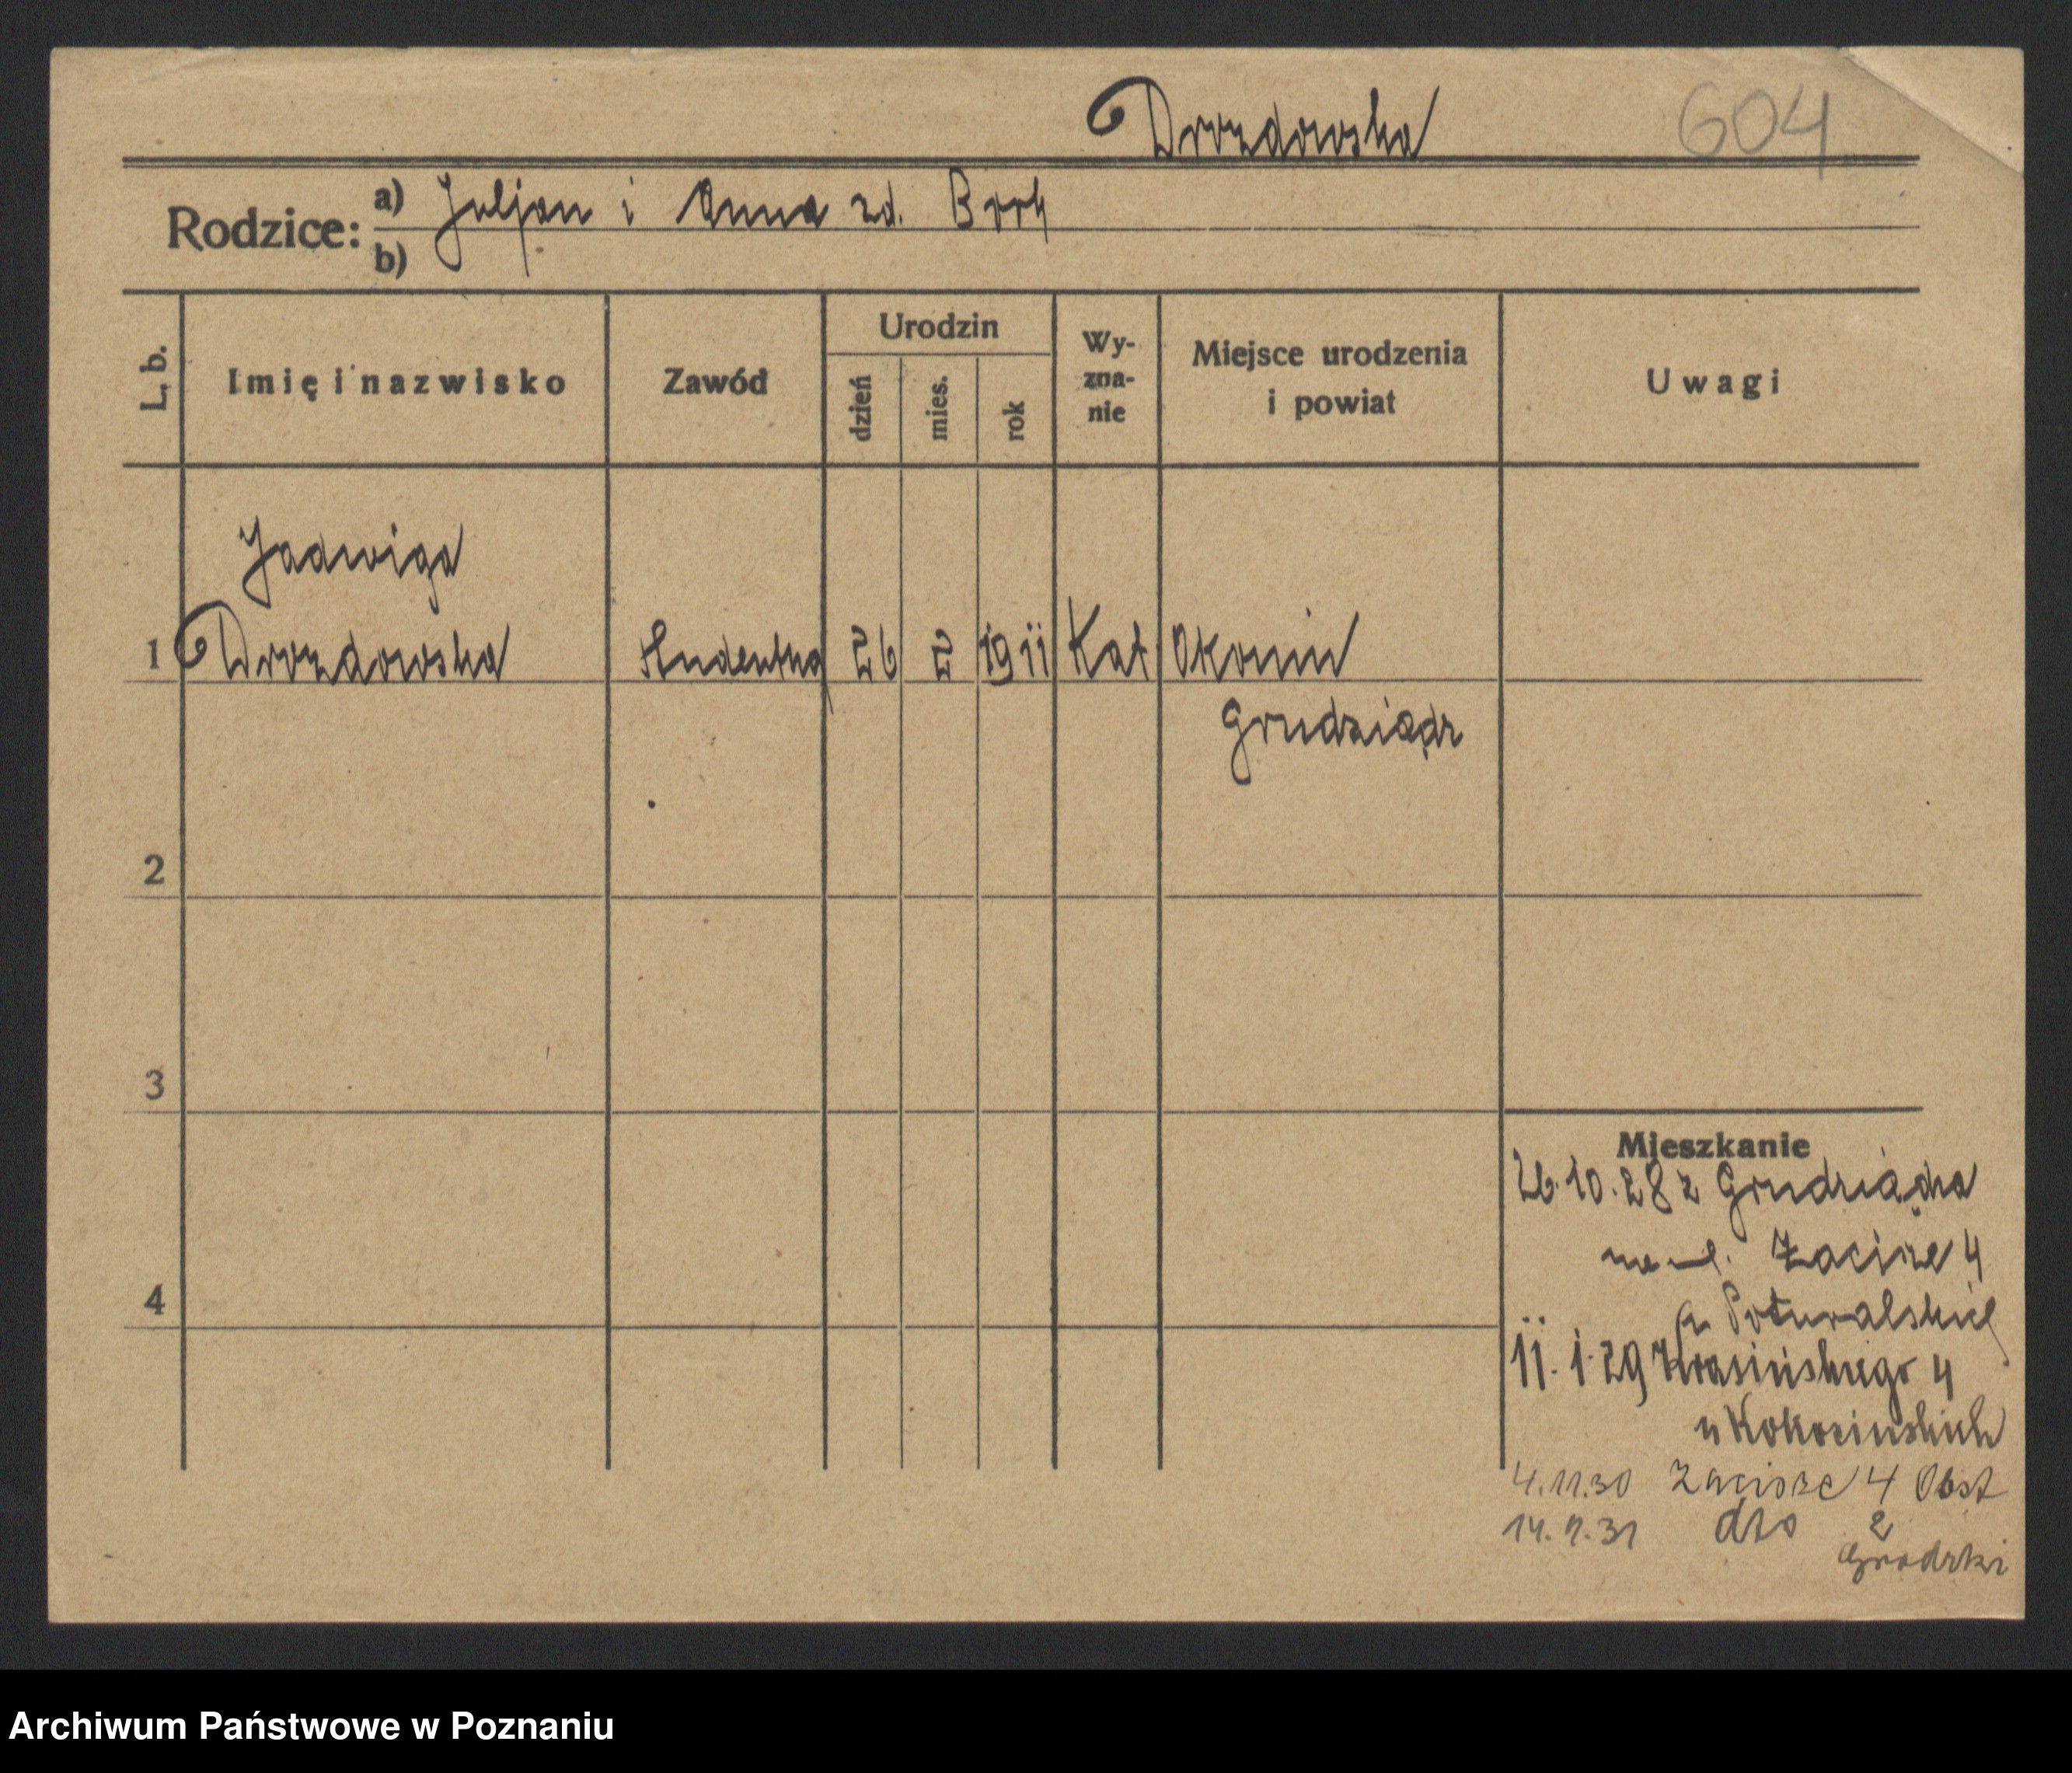 Drozdowska
604
Rodzice: a) Juljan i Anna zd. Bork
b)
L. b.
Imię i nazwisko
Zawód
Urodzin
dzień
mies.
rok
Wy-
zna-
nie
Miejsce urodzenia
i powiat
Uwagi
Jadwiga
1 Drozdowska studentka 26 2 1911 Kat Okonin
Grudziądz
2
3
4
Mieszkanie
26.10.28 z Grudziądza
na ul. Zacisze 4
p. Poturalskiej
11.1.29 Krasińskiego 4
u Kokocinskich
4.11.30 Zacisze 4 Obst
14.9.31 dto 2
Grodzki
Archiwum Państwowe w Poznaniu